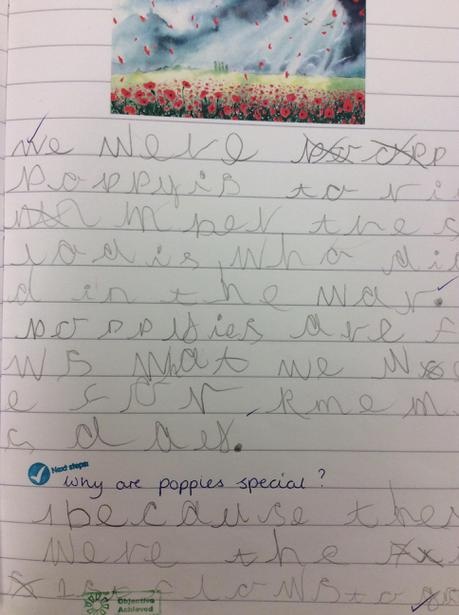 we were
poppyis to ri
mper the s
lodis who di
d in the war.
poppyies are f
ws that we
e for rmem
s day.
Next steps:
Why are poppies special?
because they
were the
1st flows to
Objective
Achieved